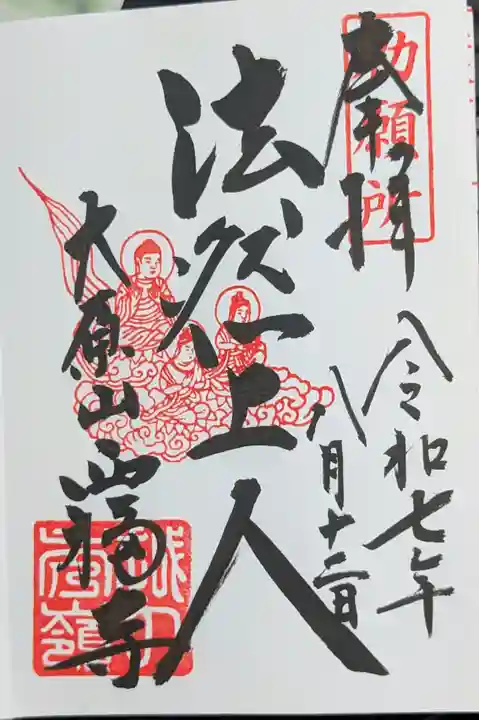 勅願所
奉拝
令和七年
八月十三日
法然上人
大原山
西福寺